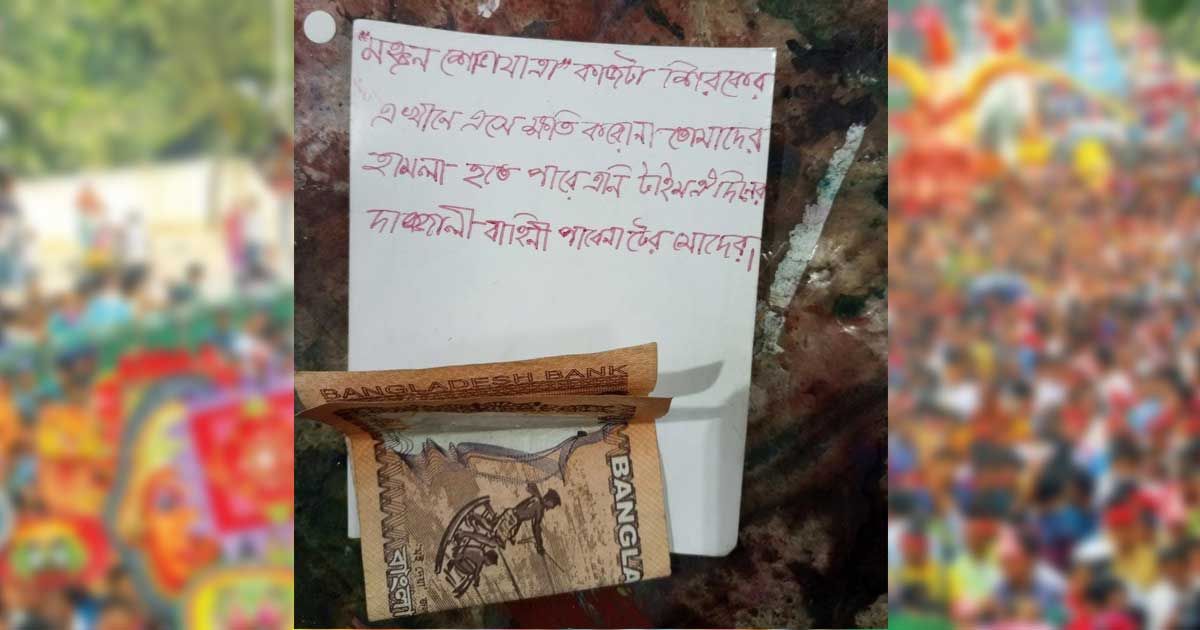 "মঙ্গল শোভাযাত্রা" কাজটা শিরকের
এখানে এসে ক্ষতি করোনা তোমাদের
হামলা হতে পারে এনি টাইম ঐ দিনের
দাজ্জালী বাহিনী পাবেনা টের মোদের।
BANGLADESH BANK
BANGLA
বাংলা